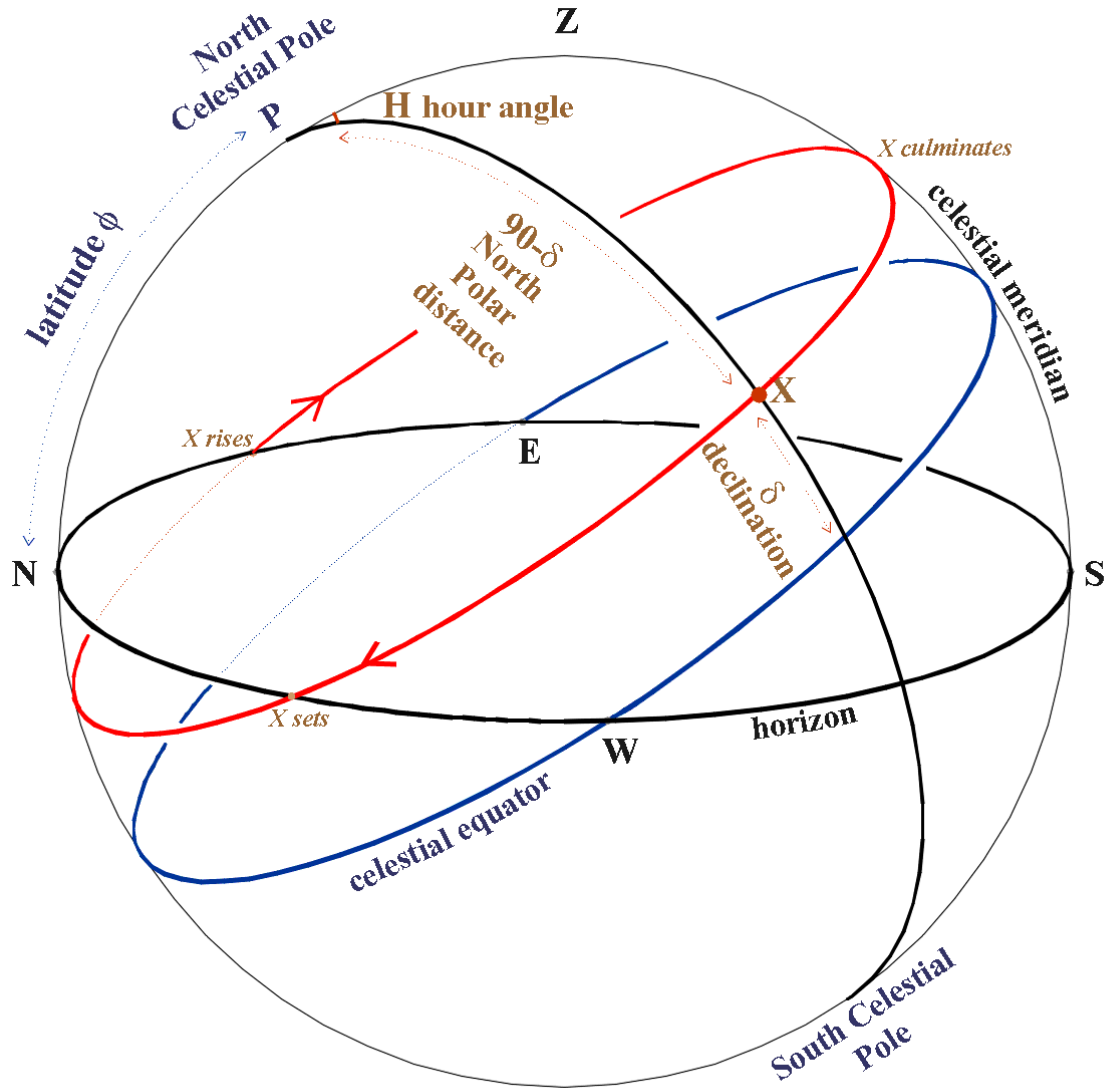 Z
North
Celestial Pole
P
H hour angle
X culminates
celestial meridian
latitude ϕ
90-δ
North
Polar
distance
X
X rises
E
δ
declination
N
S
X sets
W
horizon
celestial equator
South Celestial
Pole